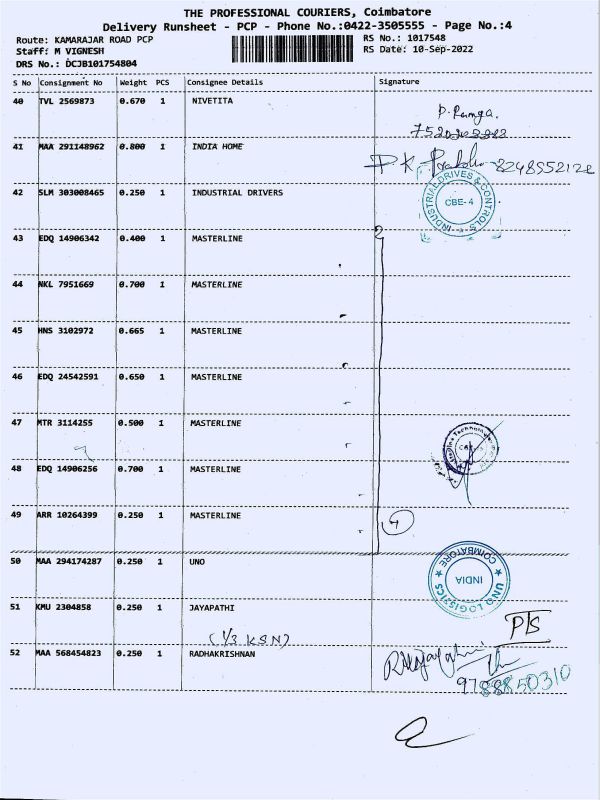 THE PROFESSIONAL COURIERS, Coimbatore
Delivery Runsheet - PCP - Phone No.:0422-3505555 - Page No.:4
Route: KAMARAJAR ROAD PCP
RS No.: 1017548
Staff: M VIGNESH
RS Date: 10-Sep-2022
DRS No.: DCJB101754804
S No Consignment No Weight PCS Consignee Details Signature
40 TVL 2569873 0.670 1 NIVETITA
41 MAA 291148962 0.800 1 INDIA HOME
42 SLM 303008465 0.250 1 INDUSTRIAL DRIVERS
INDUSTRIAL DRIVES & CONTROLS
CBE-4
43 EDQ 14906342 0.400 1 MASTERLINE
44 NKL 7951669 0.700 1 MASTERLINE
45 HNS 3102972 0.665 1 MASTERLINE
46 EDQ 24542591 0.650 1 MASTERLINE
47 MTR 3114255 0.500 1 MASTERLINE
48 EDQ 14906256 0.700 1 MASTERLINE
49 ARR 10264399 0.250 1 MASTERLINE
50 MAA 294174287 0.250 1 UNO
UNO LOGISTICS
COIMBATORE
INDIA
51 KMU 2304858 0.250 1 JAYAPATHI
(1/3 KSN)
52 MAA 568454823 0.250 1 RADHAKRISHNAN
9788850310